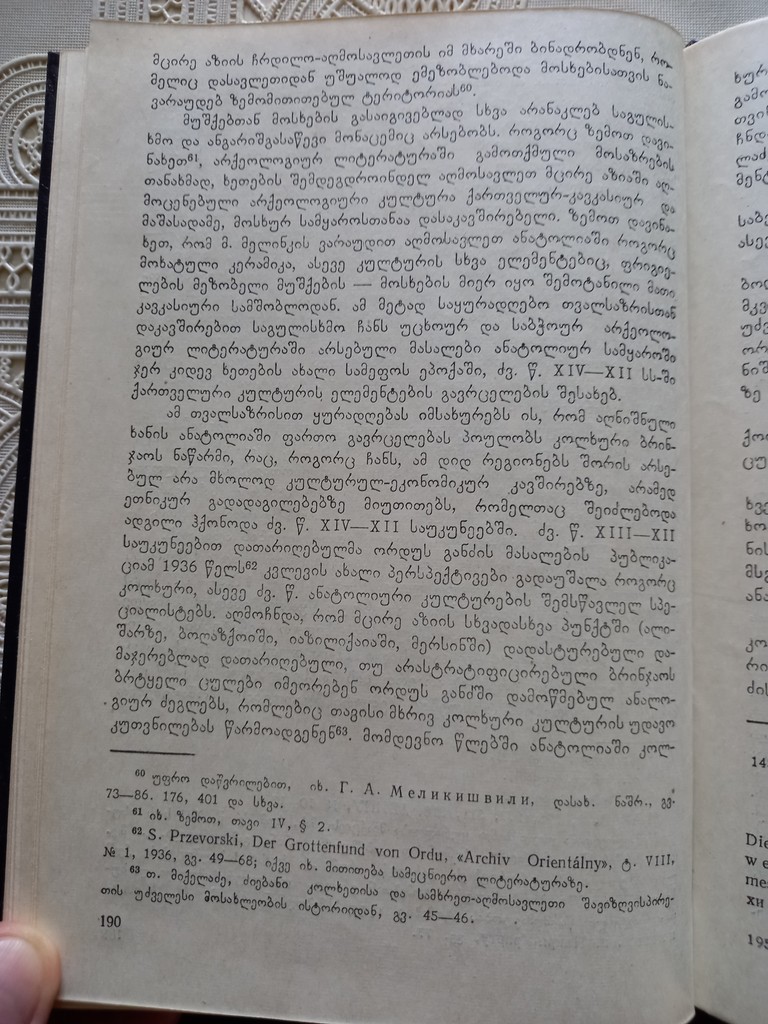 მცირე აზიის ჩრდილო-აღმოსავლეთის იმ მხარეში ბინადრობდნენ, რო-
მელიც დასავლეთიდან უშუალოდ ემეზობლებოდა მოსხებისათვის ნა-
ვარაუდებ ზემომითითებულ ტერიტორიას⁶⁰.
მუშქებთან მოსხების გასაიგივებლად სხვა არანაკლებ საგულის-
ხმო და ანგარიშგასაწევი მონაცემიც არსებობს. როგორც ზემოთ დავი-
ნახეთ⁶¹, არქეოლოგიურ ლიტერატურაში გამოთქმული მოსაზრების
თანახმად, ხეთების შემდეგდროინდელ აღმოსავლეთ მცირე აზიაში აღ-
მოცენებული არქეოლოგიური კულტურა ქართველურ-კავკასიურ და
მაშასადამე, მოსხურ სამყაროსთანაა დასაკავშირებელი. ზემოთ დავინა-
ხეთ, რომ მ. მელინკის ვარაუდით აღმოსავლეთ ანატოლიაში როგორც
მოხატული კერამიკა, ასევე კულტურის სხვა ელემენტებიც, ფრიგიე-
ლების მეზობელი მუშქების — მოსხების მიერ იყო შემოტანილი მათი
კავკასიური სამშობლოდან. ამ მეტად საყურადღებო თვალსაზრისთან
დაკავშირებით საგულისხმო ჩანს უცხოურ და საბჭოურ არქეოლო-
გიურ ლიტერატურაში არსებული მასალები ანატოლიურ სამყაროში
ჯერ კიდევ ხეთების ახალი სამეფოს ეპოქაში, ძვ. წ. XIV—XII სს-ში
ქართველური კულტურის ელემენტების გავრცელების შესახებ.
ამ თვალსაზრისით ყურადღებას იმსახურებს ის, რომ აღნიშნული
ხანის ანატოლიაში ფართო გავრცელებას პოულობს კოლხური ბრინ-
ჯაოს ნაწარმი, რაც, როგორც ჩანს, ამ დიდ რეგიონებს შორის არსე-
ბულ არა მხოლოდ კულტურულ-ეკონომიკურ კავშირებზე, არამედ
ეთნიკურ გადადაგილებებზე მიუთითებს, რომელთაც შეიძლებოდა
ადგილი ჰქონოდა ძვ. წ. XIV—XII საუკუნეებში. ძვ. წ. XIII—XII
საუკუნეებით დათარიღებულმა ორდუს განძის მასალების პუბლიკა-
ციამ 1936 წელს⁶² კვლევის ახალი პერსპექტივები გადაუშალა როგორც
კოლხური, ასევე ძვ. წ. ანატოლიური კულტურების შემსწავლელ სპე-
ციალისტებს. აღმოჩნდა, რომ მცირე აზიის სხვადასხვა პუნქტში (ალი-
შარზე, ბოღაზქოიში, იაზილიქაიაში, მერსინში) დადასტურებული და-
მაჯერებლად დათარიღებული, თუ არასტრატიფიცირებული ბრინჯაოს
ბრტყელი ცულები იმეორებენ ორდუს განძში დამოწმებულ ანალო-
გიურ ძეგლებს, რომლებიც თავისი მხრივ კოლხური კულტურის უდავო
კუთვნილებას წარმოადგენენ⁶³. მომდევნო წლებში ანატოლიაში კოლ-
⁶⁰ უფრო დაწვრილებით, იხ. Г. А. Меликишвили, დასახ. ნაშრ., გვ.
73—86. 176, 401 და სხვა.
⁶¹ იხ. ზემოთ, თავი IV, § 2.
⁶² S. Przevorski, Der Grottenfund von Ordu, «Archiv Orientálny», ტ. VIII,
№ 1, 1936, გვ. 49—68; იქვე იხ. მითითება სამეცნიერო ლიტერატურაზე.
⁶³ თ. მიქელაძე, ძიებანი კოლხეთისა და სამხრეთ-აღმოსავლეთი შავიზღვისპირე-
თის უძველესი მოსახლეობის ისტორიიდან, გვ. 45—46.
190